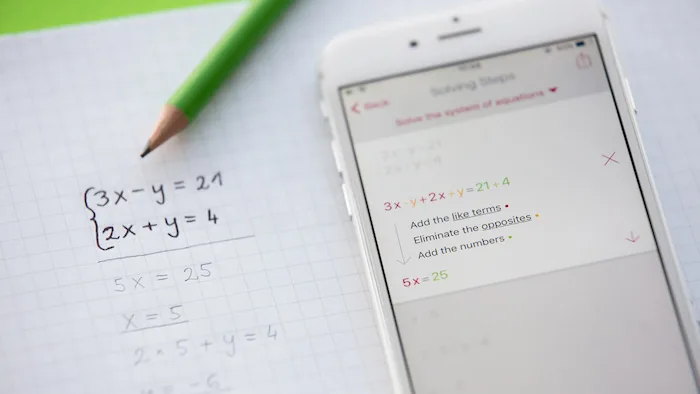 3x - y = 21
2x + y = 4
5x = 25
x = 5
2 · 5 + y = 4
Back
Solving Steps
Solve the system of equations
3x-y+2x+y=21+4
Add the like terms
Eliminate the opposites
Add the numbers
5x=25